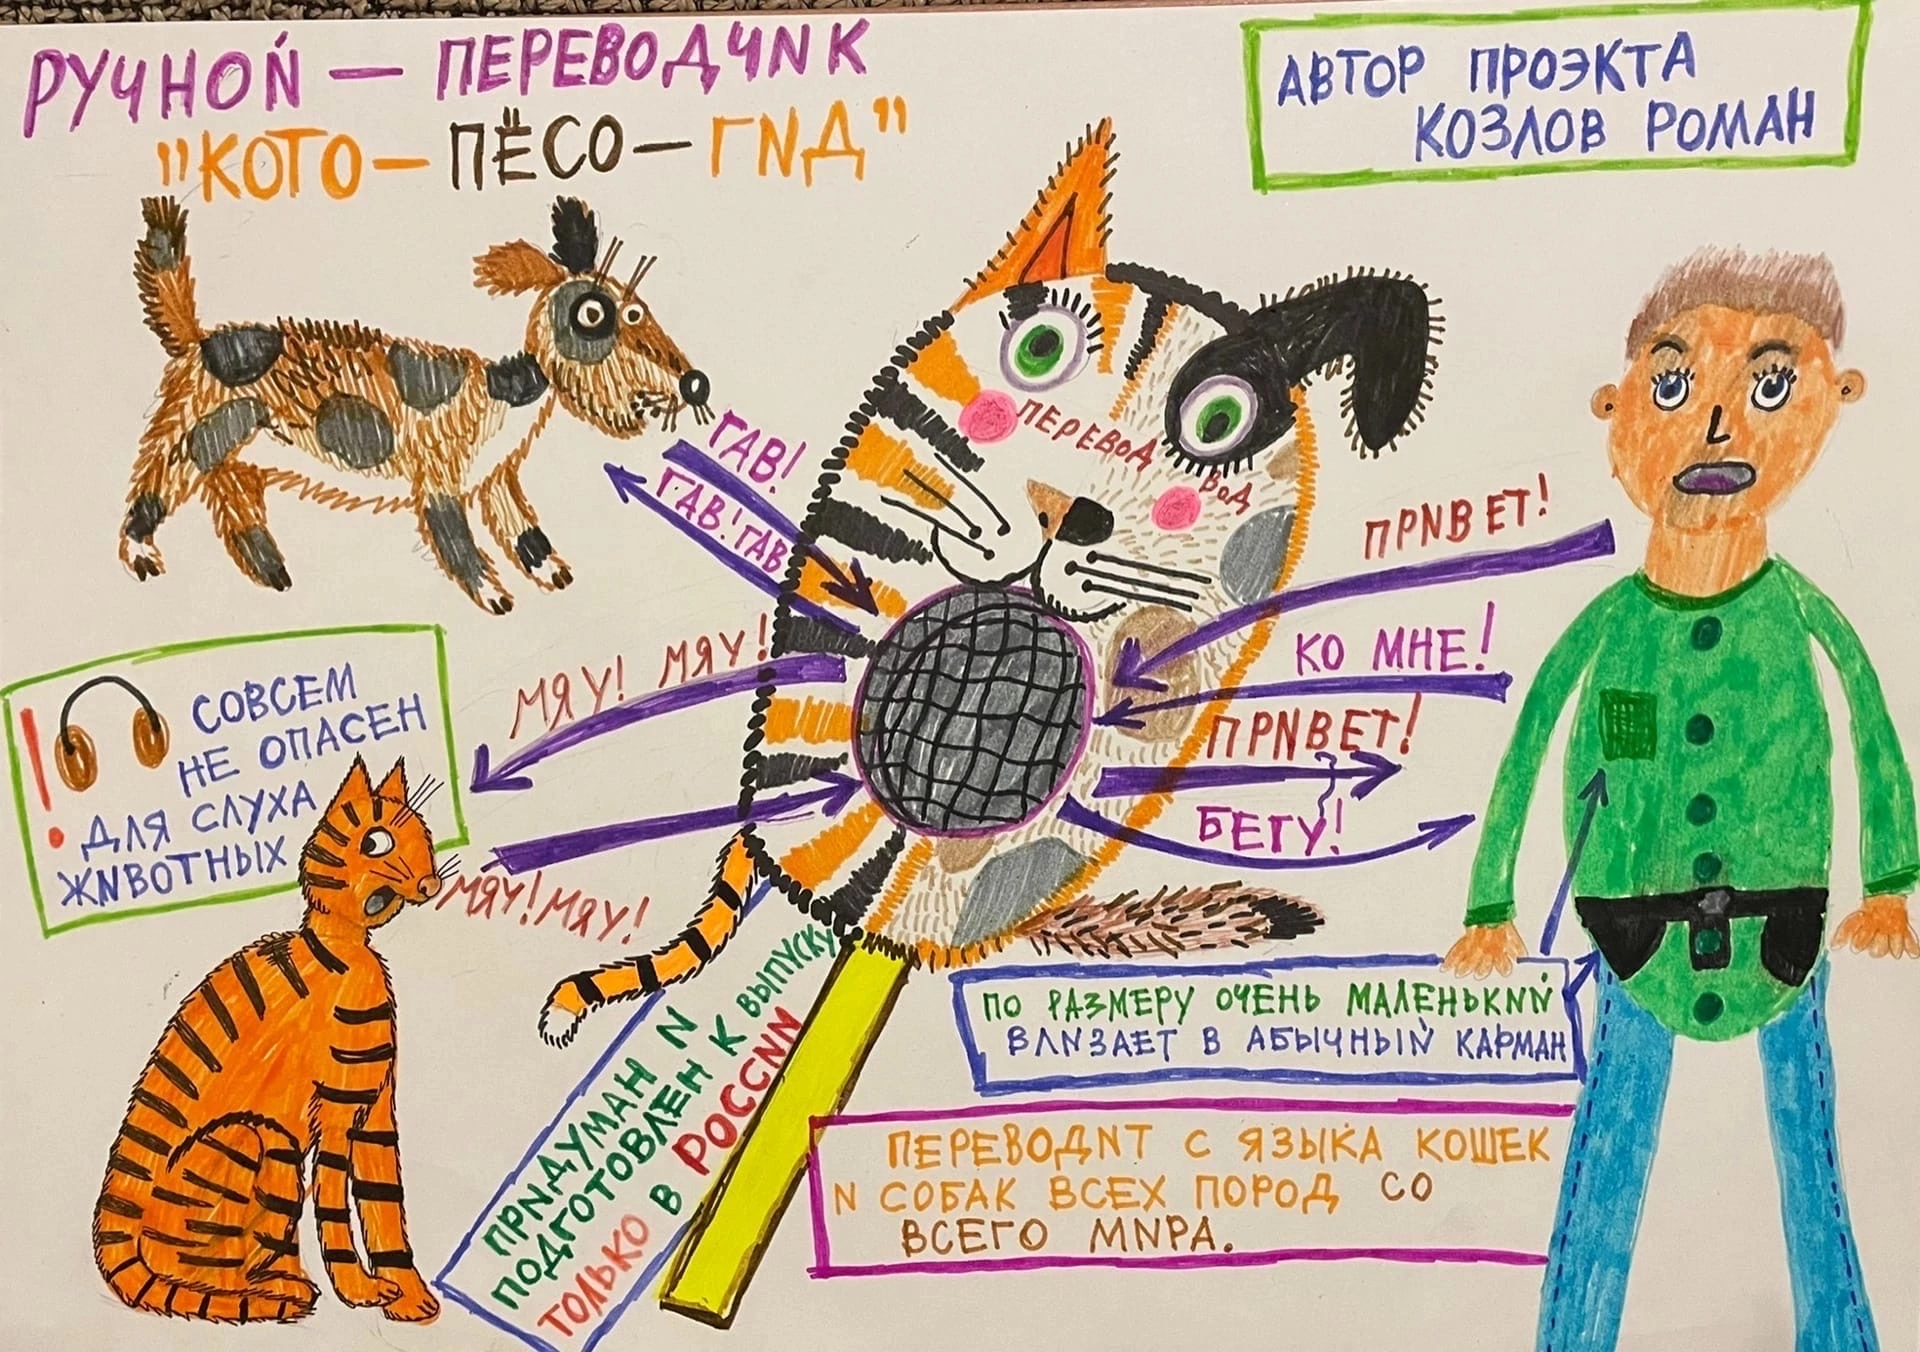 РУЧНОЙ — ПЕРЕВОДЧИК
"КОТО — ПЁСО — ГИД"
АВТОР ПРОЭКТА
КОЗЛОВ РОМАН
ГАВ!
ГАВ! ГАВ
ПЕРЕВОД
ВОД
ПРИВЕТ!
КО МНЕ!
ПРИВЕТ!
БЕГУ!
МЯУ! МЯУ!
МЯУ! МЯУ!
! СОВСЕМ
НЕ ОПАСЕН
ДЛЯ СЛУХА
ЖИВОТНЫХ
ПРИДУМАН И
ПОДГОТОВЛЕН К ВЫПУСКУ
ТОЛЬКО В РОССИИ
ПО РАЗМЕРУ ОЧЕНЬ МАЛЕНЬКИЙ
ВЛИЗАЕТ В АБЫЧНЫЙ КАРМАН
ПЕРЕВОДИТ С ЯЗЫКА КОШЕК
И СОБАК ВСЕХ ПОРОД СО
ВСЕГО МИРА.